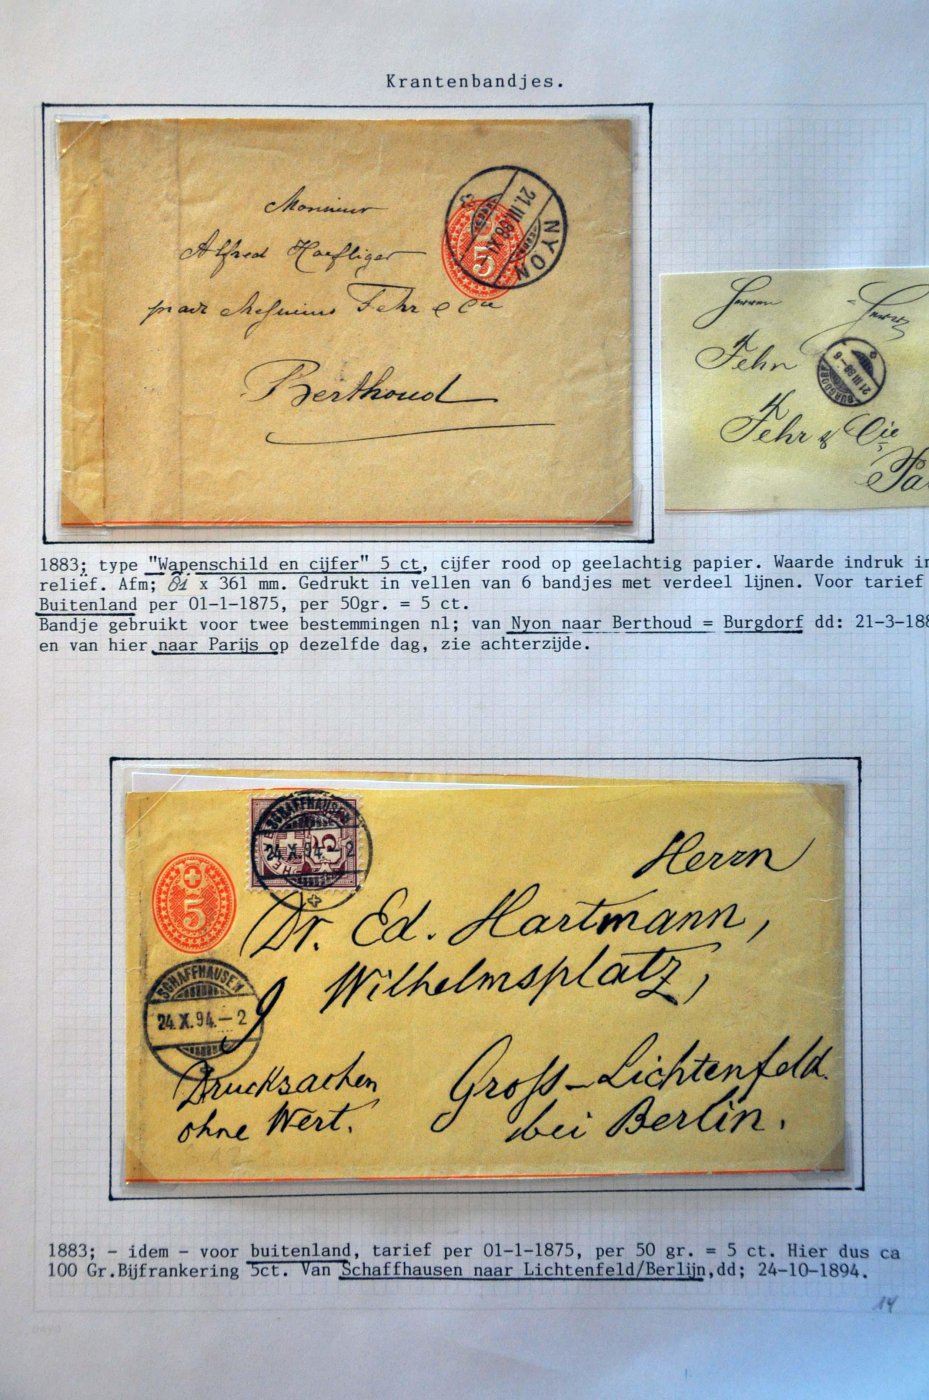 Krantenbandjes.
Monsieur
Alfred Haefliger
Messieurs Fehr & Cie
Berthoud
NYON
21.III.88.XI-
5
Herren
Fehr
Fehr & Cie
Pa
BURGDORF
21.III.88-6
1883; type "Wapenschild en cijfer" 5 ct, cijfer rood op geelachtig papier. Waarde indruk in
reliëf. Afm; 81 x 361 mm. Gedrukt in vellen van 6 bandjes met verdeel lijnen. Voor tarief
Buitenland per 01-1-1875, per 50gr. = 5 ct.
Bandje gebruikt voor twee bestemmingen nl; van Nyon naar Berthoud = Burgdorf dd: 21-3-188
en van hier naar Parijs op dezelfde dag, zie achterzijde.
SCHAFFHAUSEN
24.X.94.-2
5
5
Herrn
Dr. Ed. Hartmann,
9 Wilhelmsplatz,
SCHAFFHAUSEN
24.X.94.-2
Drucksachen
ohne Wert.
Groß-Lichtenfeld
bei Berlin.
1883; - idem - voor buitenland, tarief per 01-1-1875, per 50 gr. = 5 ct. Hier dus ca
100 Gr.Bijfrankering 5ct. Van Schaffhausen naar Lichtenfeld/Berlijn,dd; 24-10-1894.
14